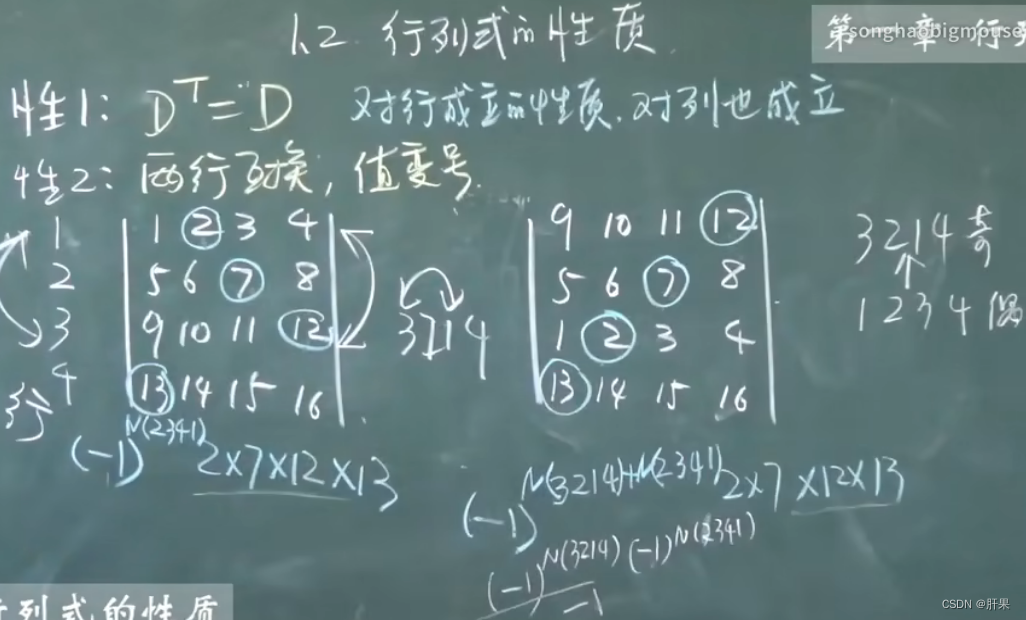 1.2 行列式的性质
songhaobigmouse
第一章 行列
性1: D^T = D 对行成立的性质,对列也成立
性2: 两行互换,值变号.
1 1 2 3 4
2 5 6 7 8
3 9 10 11 12
4 13 14 15 16
行
3214
9 10 11 12
5 6 7 8
1 2 3 4
13 14 15 16
3214 奇
1234 偶
(-1)^N(2341) 2×7×12×13
(-1)^N(3214)+N(2341) 2×7×12×13
(-1)^N(3214) (-1)^N(2341)
-1
行列式的性质
CSDN @肝果